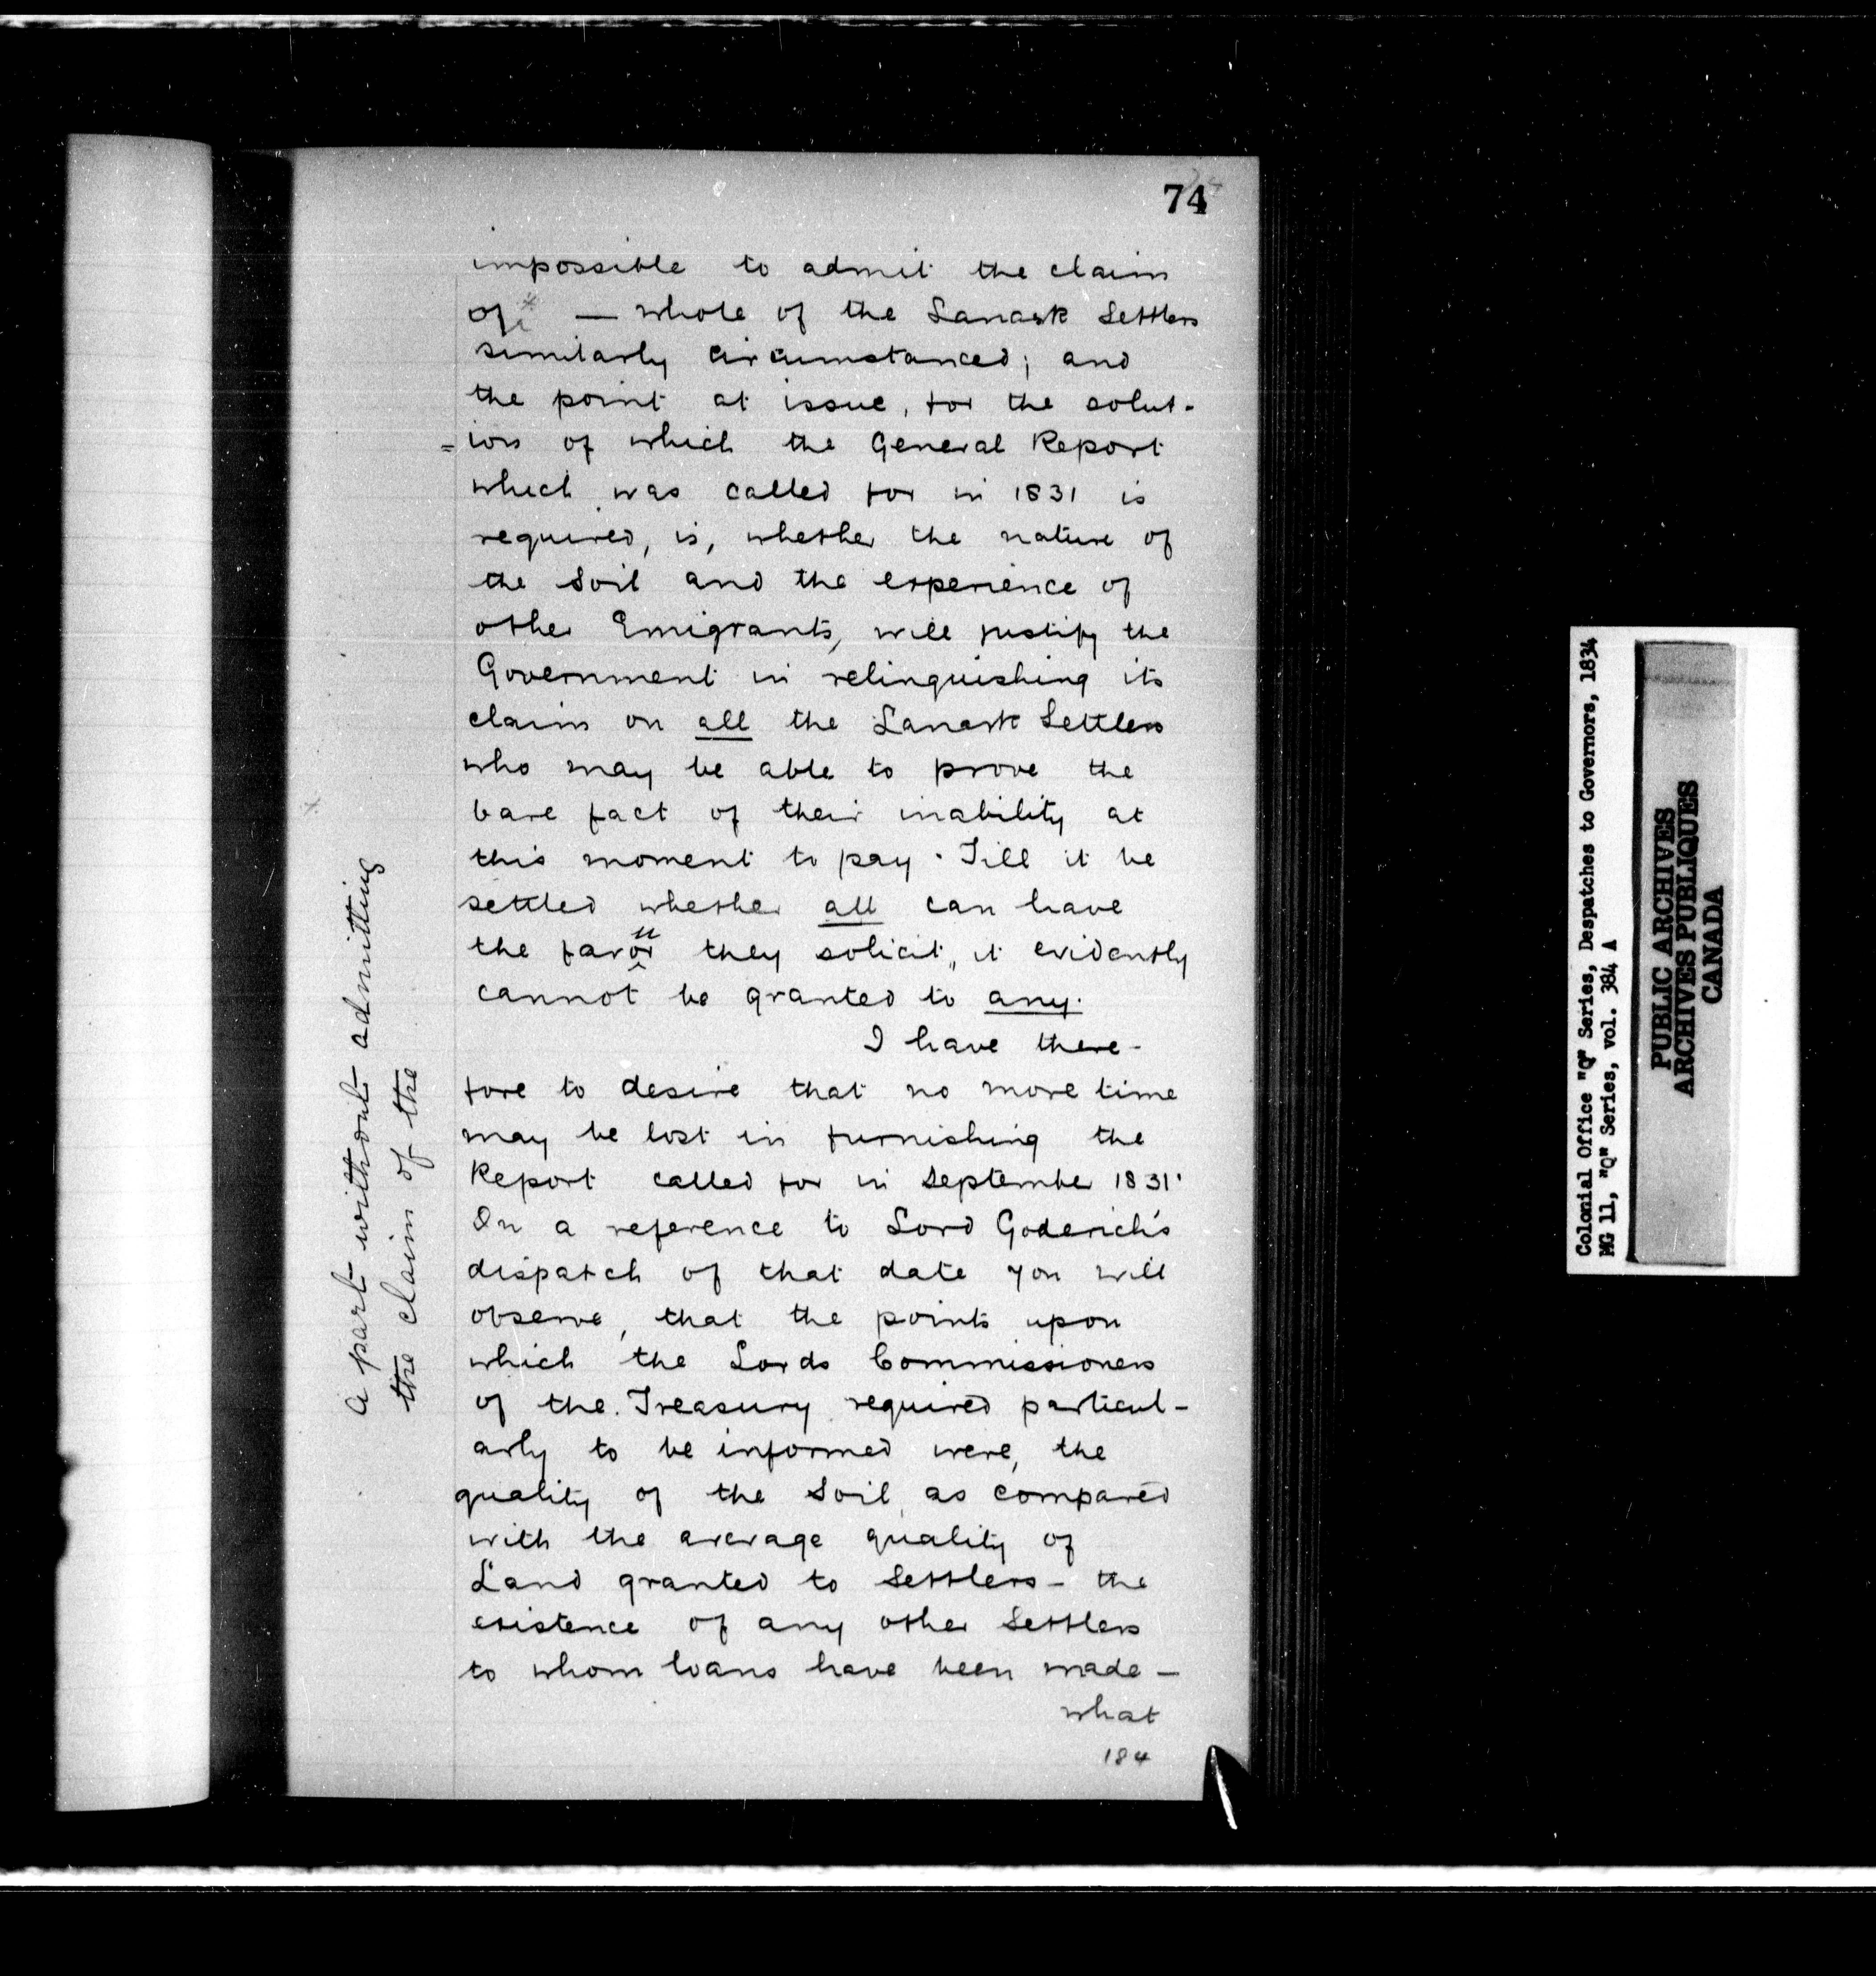 74
impossible to admit the claim
of — whole of the Lanark Settlers
similarly circumstanced; and
the point at issue, for the solut-
=ion of which the General Report
which was called for in 1831 is
required, is, whether the nature of
the Soil and the experience of
other Emigrants, will justify the
Government in relinquishing its
claim on all the Lanark Settlers
who may be able to prove the
bare fact of their inability at
this moment to pay. Till it be
settled whether all can have
the favour they solicit, it evidently
cannot be granted to any.
I have there-
fore to desire that no more time
may be lost in furnishing the
Report called for in September 1831.
On a reference to Lord Goderich's
dispatch of that date you will
observe, that the points upon
which the Lords Commissioners
of the Treasury required particul-
arly to be informed were, the
quality of the Soil, as compared
with the average quality of
Land granted to Settlers - the
existence of any other Settlers
to whom loans have been made —
what
184
a part without admitting
the claim of the
Colonial Office "Q" Series, Despatches to Governors, 1834
MG 11, "Q" Series, vol. 384 A
PUBLIC ARCHIVES
ARCHIVES PUBLIQUES
CANADA